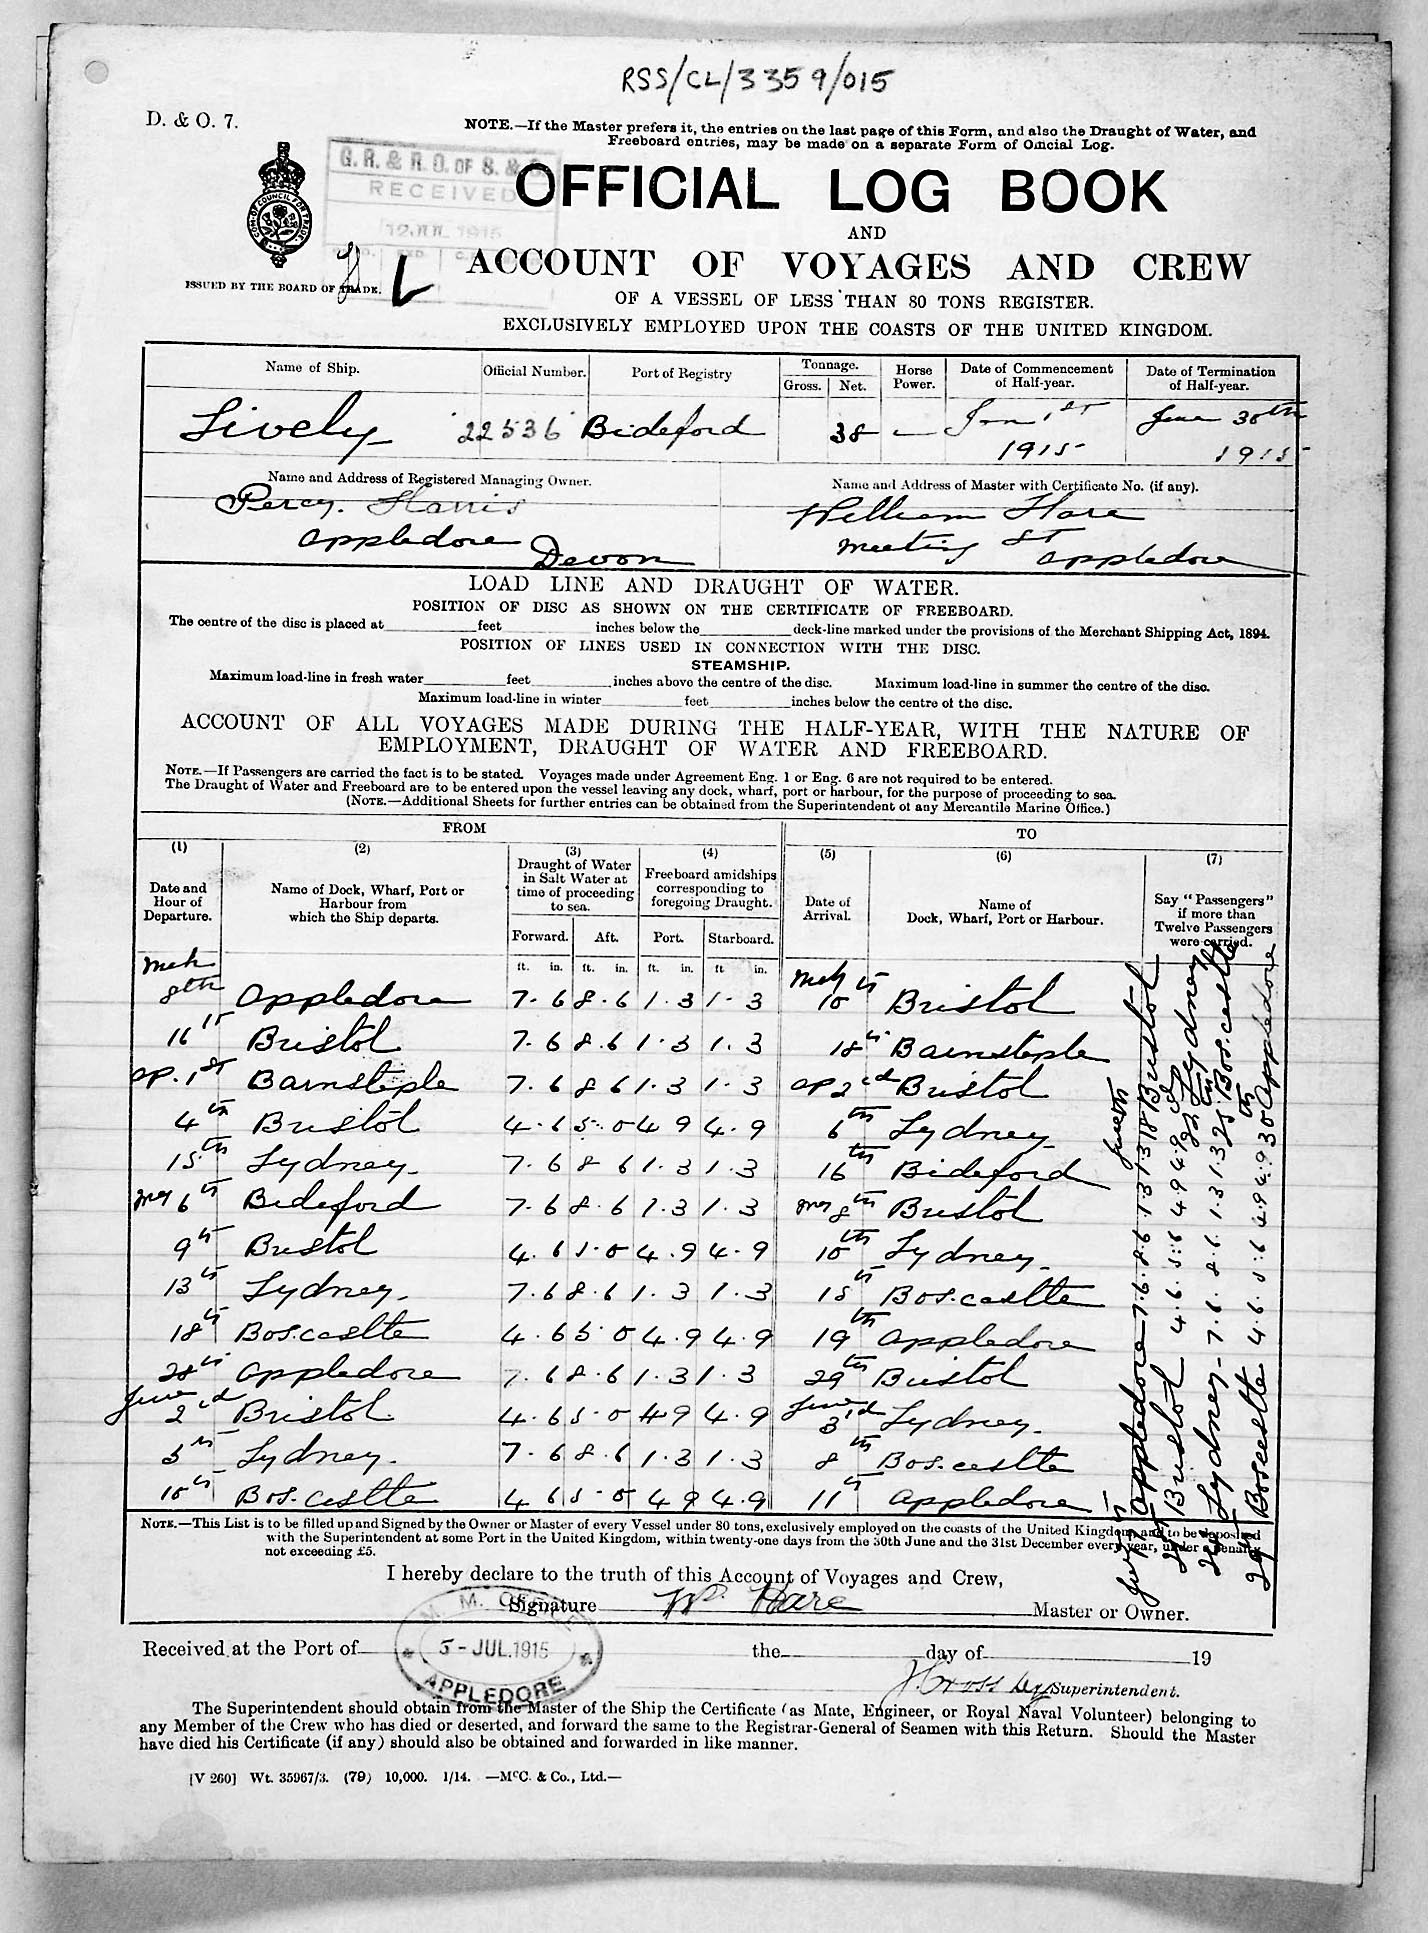 RSS/CL/3359/015
D. & O. 7.
NOTE.—If the Master prefers it, the entries on the last page of this Form, and also the Draught of Water, and
Freeboard entries, may be made on a separate Form of Official Log.
G. R. & R. O. OF S. & S.
RECEIVED
OFFICIAL LOG BOOK
AND
ACCOUNT OF VOYAGES AND CREW
ISSUED BY THE BOARD OF TRADE.
L
OF A VESSEL OF LESS THAN 80 TONS REGISTER.
EXCLUSIVELY EMPLOYED UPON THE COASTS OF THE UNITED KINGDOM.
Name of Ship. Official Number. Port of Registry Tonnage. Gross. Net. Horse Power. Date of Commencement of Half-year. Date of Termination of Half-year.
Lively 22536 Bideford 38 — Jan 1st 1915 June 30th 1915
Name and Address of Registered Managing Owner. Name and Address of Master with Certificate No. (if any).
Percy. Harris William Hare
Appledore Devon Meeting St Appledore
LOAD LINE AND DRAUGHT OF WATER.
POSITION OF DISC AS SHOWN ON THE CERTIFICATE OF FREEBOARD.
The centre of the disc is placed at feet inches below the deck-line marked under the provisions of the Merchant Shipping Act, 1894.
POSITION OF LINES USED IN CONNECTION WITH THE DISC.
STEAMSHIP.
Maximum load-line in fresh water feet inches above the centre of the disc. Maximum load-line in summer the centre of the disc.
Maximum load-line in winter feet inches below the centre of the disc.
ACCOUNT OF ALL VOYAGES MADE DURING THE HALF-YEAR, WITH THE NATURE OF
EMPLOYMENT, DRAUGHT OF WATER AND FREEBOARD.
NOTE.—If Passengers are carried the fact is to be stated. Voyages made under Agreement Eng. 1 or Eng. 6 are not required to be entered.
The Draught of Water and Freeboard are to be entered upon the vessel leaving any dock, wharf, port or harbour, for the purpose of proceeding to sea.
(NOTE.—Additional Sheets for further entries can be obtained from the Superintendent of any Mercantile Marine Office.)
FROM TO
(1) (2) (3) (4) (5) (6) (7)
Date and Hour of Departure. Name of Dock, Wharf, Port or Harbour from which the Ship departs. Draught of Water in Salt Water at time of proceeding to sea. Freeboard amidships corresponding to foregoing Draught. Date of Arrival. Name of Dock, Wharf, Port or Harbour. Say "Passengers" if more than Twelve Passengers were carried.
Forward. Aft. Port. Starboard.
ft. in. ft. in. ft. in. ft in.
Mch 8th Appledore 7.6 8.6 1.3 1.3 Mch 10th Bristol
16th Bristol 7.6 8.6 1.3 1.3 18th Barnsteple
Ap. 1st Barnsteple 7.6 8 6 1.3 1.3 Ap 2cd Bristol
4th Bristol 4.6 5.0 4 9 4.9 6th Lydney
15th Lydney. 7.6 8 6 1.3 1.3 16th Bideford
May 6th Bideford 7.6 8.6 1.3 1.3 May 8th Bristol
9th Bristol 4.6 5.0 4.9 4.9 10th Lydney.
13th Lydney. 7.6 8.6 1.3 1.3 15th Bos.caslte
18th Bos.caslte 4.6 5.0 4.9 4.9 19th Appledore
28th Appledore 7.6 8.6 1.3 1.3 29th Bristol
June 2cd Bristol. 4.6 5.0 49 4.9 June 3rd Lydney.
5th Lydney. 7.6 8.6 1.3 1.3 8th Bos.ceslte
10th Bos.ceslte 4 6 5.0 4 9 4.9 11th Appledore
Appledore 7.6. 8.6 1 3 1 3 18 Bristol
Bristol 4.6. 5.6 4 9 4.9 Lydney
Lydney 7.6. 8.6. 1.3 1.3 25th Bos.ceslte
29th Bosceslte 4.6. 5.6 4.9 4.9 30th Appledore
NOTE.—This List is to be filled up and Signed by the Owner or Master of every Vessel under 80 tons, exclusively employed on the coasts of the United Kingdom, and to be deposited
with the Superintendent at some Port in the United Kingdom, within twenty-one days from the 30th June and the 31st December every year, under a penalty
not exceeding £5.
I hereby declare to the truth of this Account of Voyages and Crew,
Signature Wm Hare Master or Owner.
Received at the Port of the day of 19
5-JUL.1915
APPLEDORE
J Cross Dy Superintendent.
The Superintendent should obtain from the Master of the Ship the Certificate (as Mate, Engineer, or Royal Naval Volunteer) belonging to
any Member of the Crew who has died or deserted, and forward the same to the Registrar-General of Seamen with this Return. Should the Master
have died his Certificate (if any) should also be obtained and forwarded in like manner.
[V 260] Wt. 35967/3. (79) 10,000. 1/14. —McC. & Co., Ltd.—